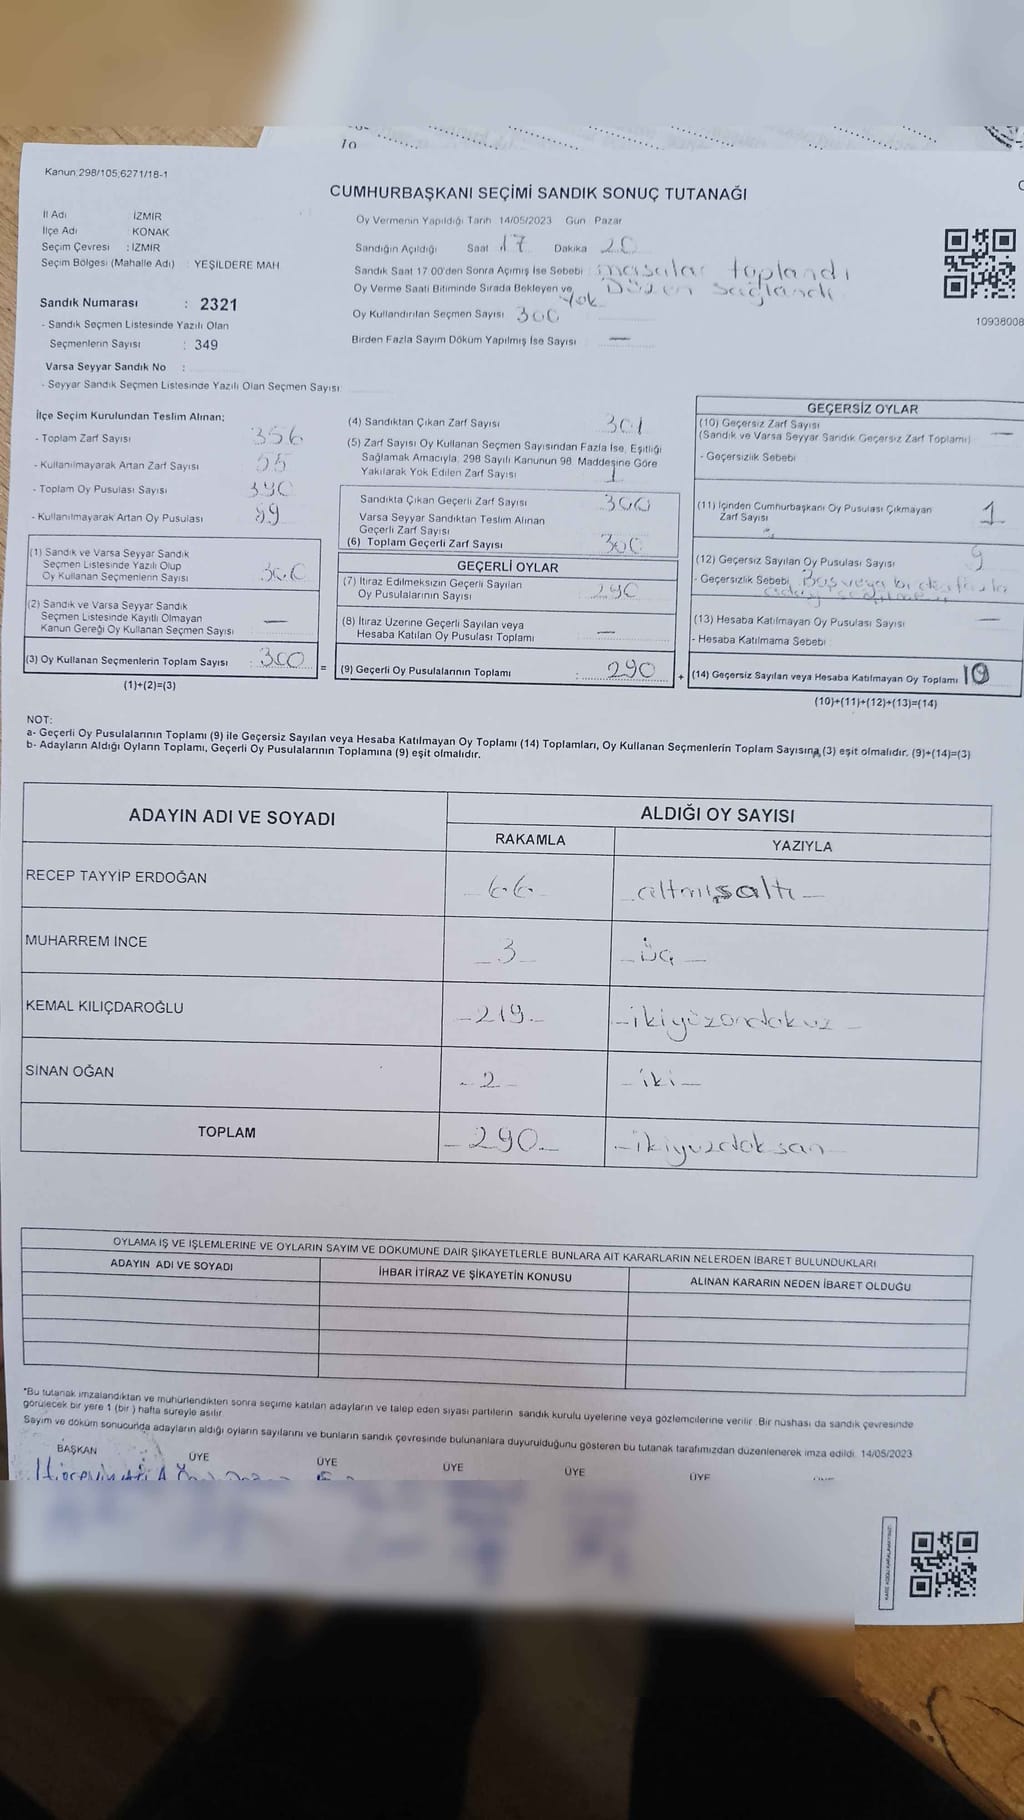 10
Kanun 298/105,6271/18-1
CUMHURBAŞKANI SEÇİMİ SANDIK SONUÇ TUTANAĞI
İl Adı İZMİR
İlçe Adı KONAK
Seçim Çevresi : İZMİR
Seçim Bölgesi (Mahalle Adı) YEŞİLDERE MAH
Oy Vermenin Yapıldığı Tarih 14/05/2023 Gün Pazar
Sandığın Açıldığı Saat 17 Dakika 20
Sandık Saat 17 00'den Sonra Açımış İse Sebebi masalar toplandı
Oy Verme Saati Bitiminde Sırada Bekleyen ve Düzen sağlandı
Yok
Oy Kullandırılan Seçmen Sayısı 300
Birden Fazla Sayım Döküm Yapılmış İse Sayısı —
10938008
Sandık Numarası : 2321
- Sandık Seçmen Listesinde Yazılı Olan
Seçmenlerin Sayısı : 349
Varsa Seyyar Sandık No :
- Seyyar Sandık Seçmen Listesinde Yazılı Olan Seçmen Sayısı
İlçe Seçim Kurulundan Teslim Alınan;
- Toplam Zarf Sayısı 356
- Kullanılmayarak Artan Zarf Sayısı 55
- Toplam Oy Pusulası Sayısı 390
- Kullanılmayarak Artan Oy Pusulası 89
(1) Sandık ve Varsa Seyyar Sandık
Seçmen Listesinde Yazılı Olup
Oy Kullanan Seçmenlerin Sayısı 300
(2) Sandık ve Varsa Seyyar Sandık
Seçmen Listesinde Kayıtlı Olmayan
Kanun Gereği Oy Kullanan Seçmen Sayısı —
(3) Oy Kullanan Seçmenlerin Toplam Sayısı 300 =
(1)+(2)=(3)
(4) Sandıktan Çıkan Zarf Sayısı 301
(5) Zarf Sayısı Oy Kullanan Seçmen Sayısından Fazla İse, Eşitliği
Sağlamak Amacıyla, 298 Sayılı Kanunun 98. Maddesine Göre
Yakılarak Yok Edilen Zarf Sayısı 1
Sandıkta Çıkan Geçerli Zarf Sayısı 300
Varsa Seyyar Sandıktan Teslim Alınan
Geçerli Zarf Sayısı
(6) Toplam Geçerli Zarf Sayısı 300
GEÇERLİ OYLAR
(7) İtiraz Edilmeksizin Geçerli Sayılan
Oy Pusulalarının Sayısı 290
(8) İtiraz Üzerine Geçerli Sayılan veya
Hesaba Katılan Oy Pusulası Toplamı —
(9) Geçerli Oy Pusulalarının Toplamı : 290 +
GEÇERSİZ OYLAR
(10) Geçersiz Zarf Sayısı
(Sandık ve Varsa Seyyar Sandık Geçersiz Zarf Toplamı) —
- Geçersizlik Sebebi
(11) İçinden Cumhurbaşkanı Oy Pusulası Çıkmayan
Zarf Sayısı 1
(12) Geçersiz Sayılan Oy Pusulası Sayısı 9
- Geçersizlik Sebebi Boş veya
(13) Hesaba Katılmayan Oy Pusulası Sayısı —
- Hesaba Katılmama Sebebi
(14) Geçersiz Sayılan veya Hesaba Katılmayan Oy Toplamı 10
(10)+(11)+(12)+(13)=(14)
NOT:
a- Geçerli Oy Pusulalarının Toplamı (9) ile Geçersiz Sayılan veya Hesaba Katılmayan Oy Toplamı (14) Toplamları, Oy Kullanan Seçmenlerin Toplam Sayısına (3) eşit olmalıdır. (9)+(14)=(3)
b- Adayların Aldığı Oyların Toplamı, Geçerli Oy Pusulalarının Toplamına (9) eşit olmalıdır.
ADAYIN ADI VE SOYADI ALDIĞI OY SAYISI
RAKAMLA YAZIYLA
RECEP TAYYİP ERDOĞAN —66— —altmışaltı—
MUHARREM İNCE —3— —üç—
KEMAL KILIÇDAROĞLU —219— —ikiyüzondokuz—
SİNAN OĞAN —2— —iki—
TOPLAM —290— —ikiyüzdoksan—
OYLAMA İŞ VE İŞLEMLERİNE VE OYLARIN SAYIM VE DÖKÜMÜNE DAİR ŞİKAYETLERLE BUNLARA AİT KARARLARIN NELERDEN İBARET BULUNDUKLARI
ADAYIN ADI VE SOYADI İHBAR İTİRAZ VE ŞİKAYETİN KONUSU ALINAN KARARIN NEDEN İBARET OLDUĞU
*Bu tutanak imzalandıktan ve mühürlendikten sonra seçime katılan adayların ve talep eden siyasi partilerin sandık kurulu üyelerine veya gözlemcilerine verilir. Bir nüshası da sandık çevresinde
görülecek bir yere 1 (bir) hafta süreyle asılır.
Sayım ve döküm sonucunda adayların aldığı oyların sayılarını ve bunların sandık çevresinde bulunanlara duyurulduğunu gösteren bu tutanak tarafımızdan düzenlenerek imza edildi. 14/05/2023
BAŞKAN ÜYE ÜYE ÜYE ÜYE ÜYE